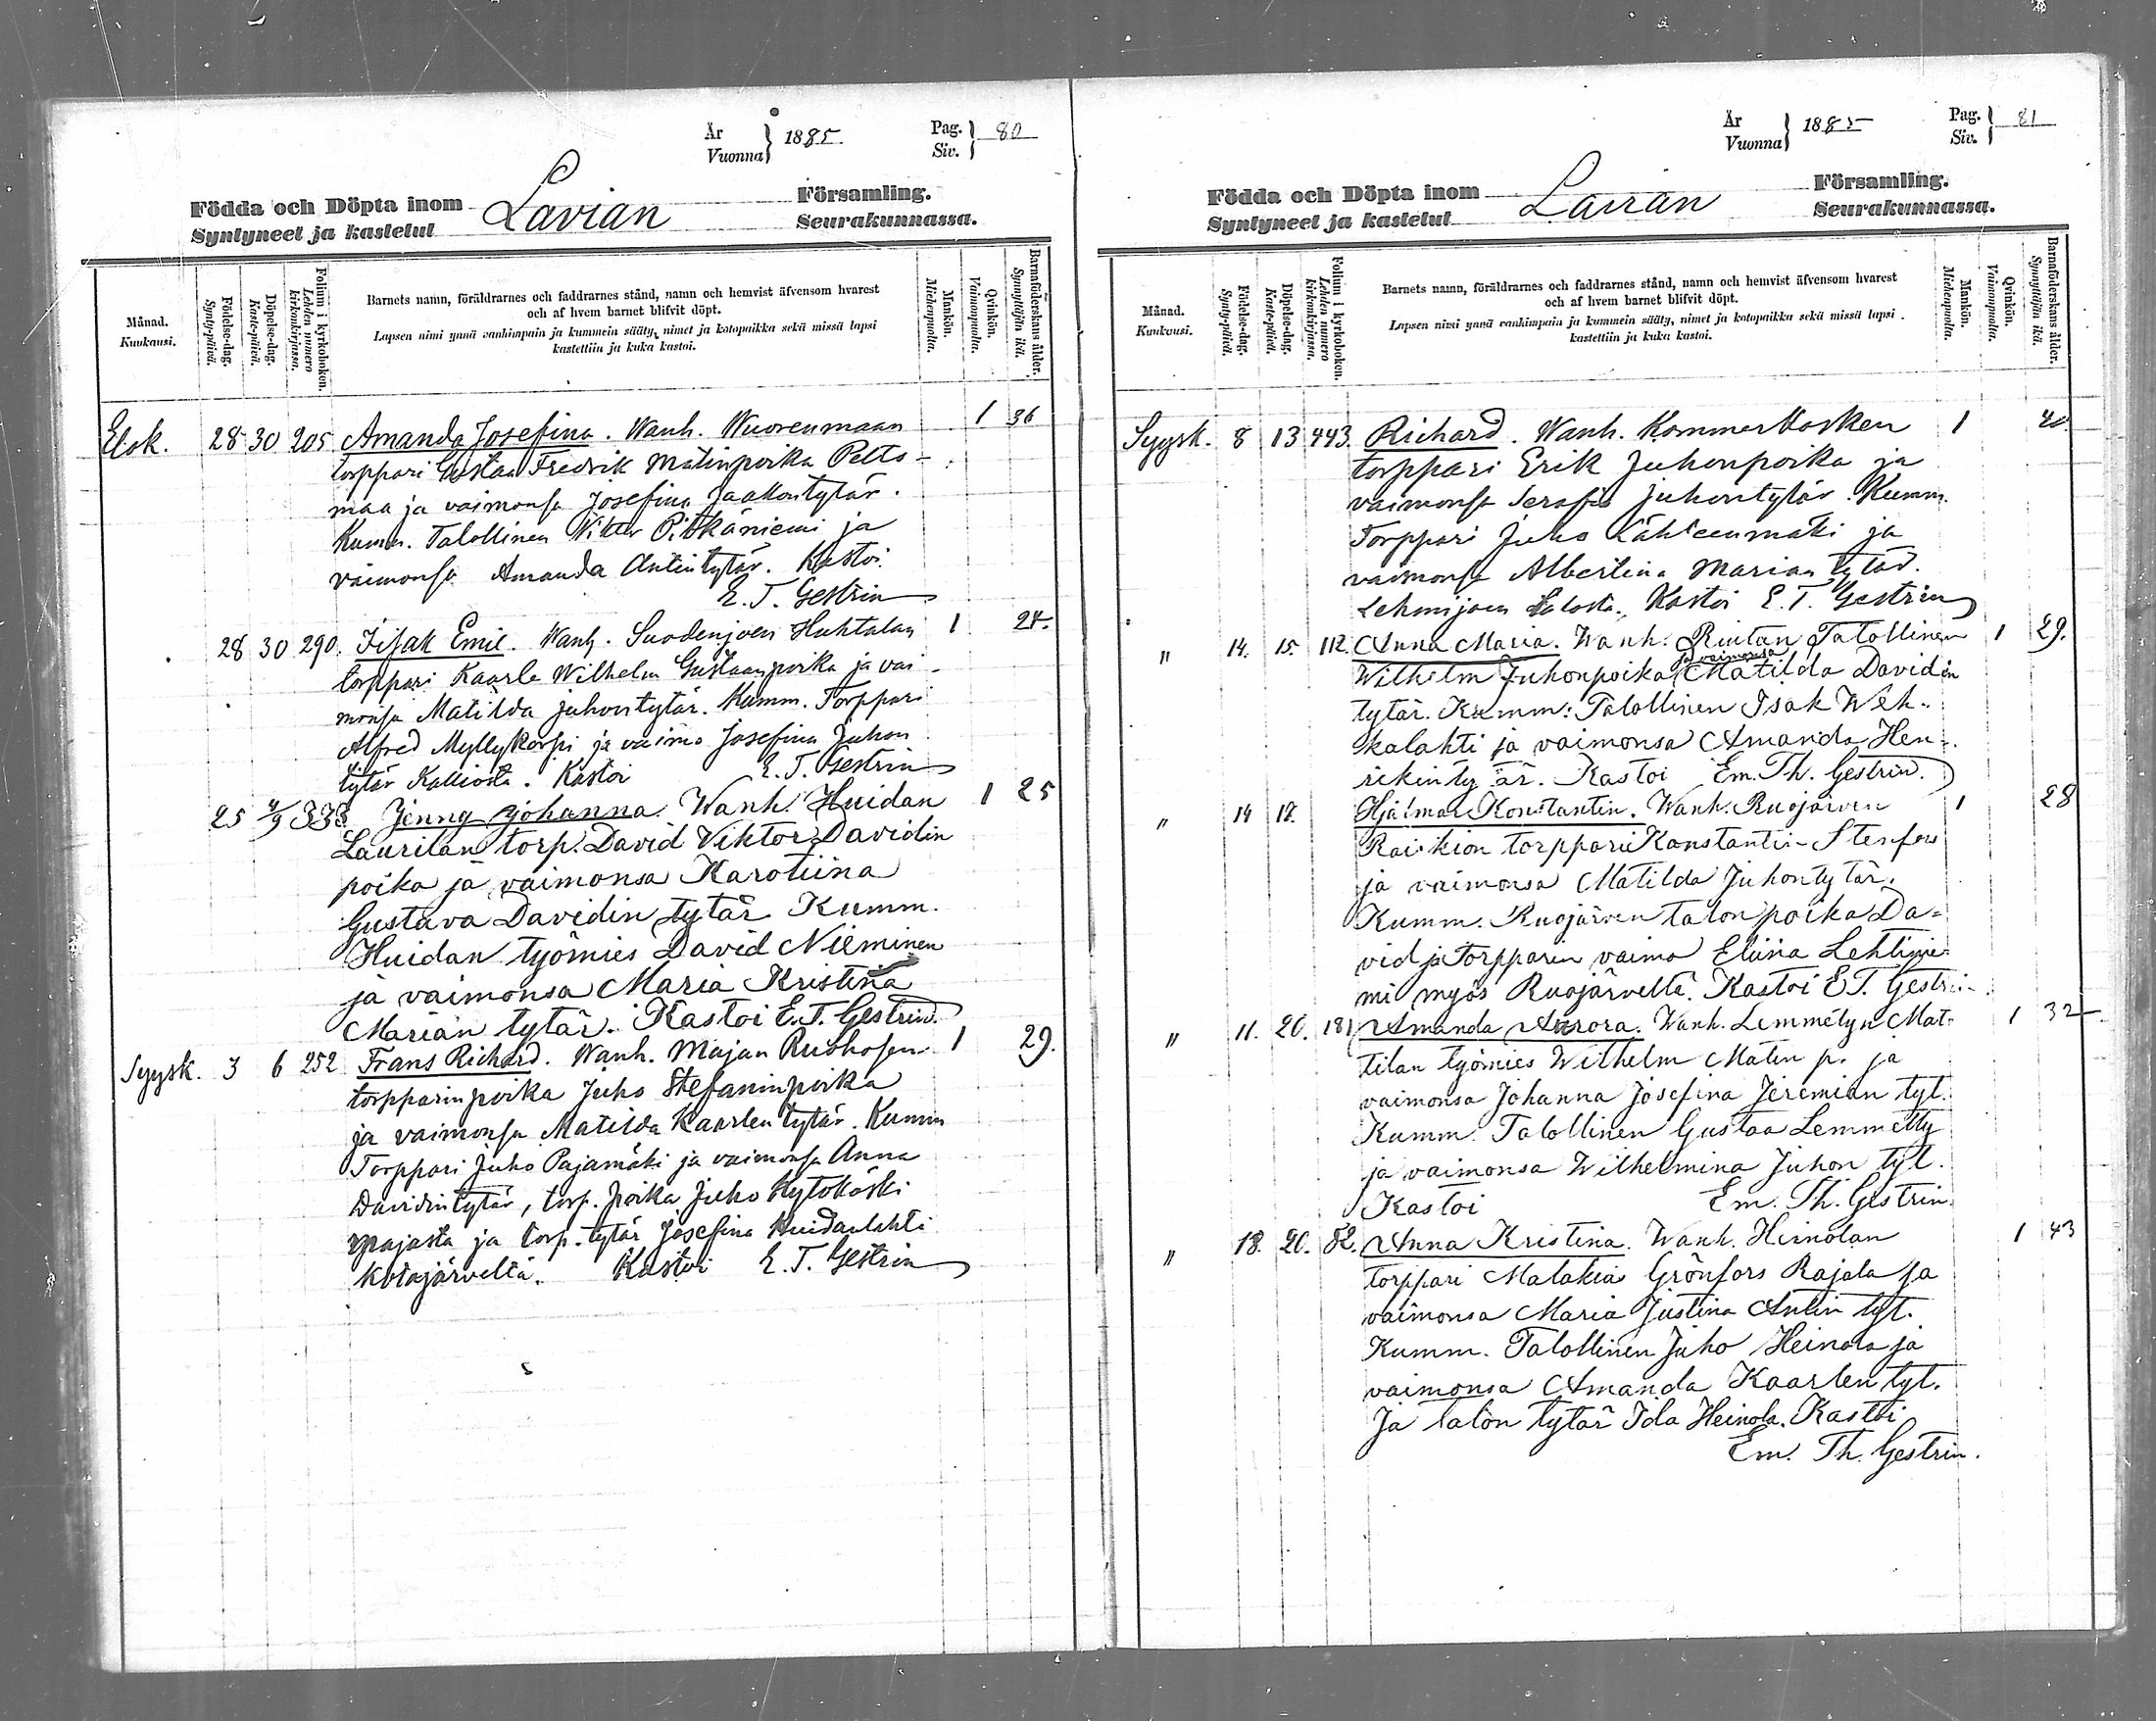 År
Vuonna} 1885. Pag.
Siv.} 80
Födda och Döpta inom Lavian Församling.
Syntyneet ja kastetut Seurakunnassa.
Månad.
Kuukausi.
Födelse-dag.
Synty-päivä.
Döpelse-dag.
Kaste-päivä.
Folium i kyrkoboken.
Lehden numero
kirkonkirjassa.
Barnets namn, föräldrarnes och faddrarnes stånd, namn och hemvist äfvensom hvarest
och af hvem barnet blifvit döpt.
Lapsen nimi ynnä vanhimpain ja kummein sääty, nimet ja kotopaikka sekä missä lapsi
kastettiin ja kuka kastoi.
Mankön.
Miehenpuolta.
Qvinkön.
Vaimonpuolta.
Barnaföderskans ålder.
Synnyttäjän ikä.
Elok. 28 30 205 Amanda Josefina. Wanh. Wuorenmaan 1 36
torppari Gustaa Fredrik Matinpoika Pelto-
maa ja vaimonsa Josefina Jaakontytär.
Kumm. Talollinen Wiktor Pitkäniemi ja
vaimonsa Amanda Antintytär. Kastoi
E. T. Gestrin
28 30 290. Iisak Emil. Wanh. Suodenjoen Huhtalan 1 24.
torppari Kaarle Wilhelm Gustaanpoika ja vai-
monsa Matilda Juhontytär. Kumm. Torppari
Alfred Myllykorpi ja vaimo Josefina Juhon
tytär Kalliosta. Kastoi E. T. Gestrin
25 4/9 333 Jenny Johanna. Wanh. Huidan 1 25
Laurilan torp. David Viktor Davidin
poika ja vaimonsa Karoliina
Gustava Davidin tytär. Kumm.
Huidan työmies David Nieminen
ja vaimonsa Maria Kristina
Marian tytär. Kastoi E. T. Gestrin.
Syysk. 3 6 252 Frans Richard. Wanh. Majan Ruohosen 1 29.
torpparinpoika Juho Stefaninpoika
ja vaimonsa Matilda Kaarlen tytär. Kumm
Torppari Juho Pajamäki ja vaimonsa Anna
Davidintytär, torp. poika Juho Kytökoski
Majasta ja torp. tytär Josefina Huidanlahti
Kotajärveltä. Kastoi E. T. Gestrin
År
Vuonna} 1885 Pag.
Siv.} 81
Födda och Döpta inom Lavian Församling.
Syntyneet ja kastetut Seurakunnassa.
Månad.
Kuukausi.
Födelse-dag.
Synty-päivä.
Döpelse-dag.
Kaste-päivä.
Folium i kyrkoboken.
Lehden numero
kirkonkirjassa.
Barnets namn, föräldrarnes och faddrarnes stånd, namn och hemvist äfvensom hvarest
och af hvem barnet blifvit döpt.
Lapsen nimi ynnä vanhimpain ja kummein sääty, nimet ja kotopaikka sekä missä lapsi
kastettiin ja kuka kastoi.
Mankön.
Miehenpuolta.
Qvinkön.
Vaimonpuolta.
Barnaföderskans ålder.
Synnyttäjän ikä.
Syysk. 8 13 443. Richard. Wanh. Kommerkosken 1 40
torppari Erik Juhonpoika ja
vaimonsa Serafia Juhontytär. Kumm.
Torppari Juho Lähteenmäki ja
vaimonsa Albertina Marian tytär.
Lehmijoen Salosta. Kastoi E. T. Gestrin
" 14. 15. 112. Anna Maria. Wanh. Riutan Talollinen 1 29.
Wilhelm Juhonpoika ja vaimonsa Matilda Davidin
tytär. Kumm: Talollinen Isak Weh-
kalahti ja vaimonsa Amanda Hen-
rikintytär. Kastoi Em. Th. Gestrin.
" 14 17. Hjalmar Konstantin. Wanh. Ruojärven 1 28
Raiskion torppari Konstantin Stenfors
ja vaimonsa Matilda Juhontytär.
Kumm. Ruojärven talon poika Da-
vid ja Torpparin vaimo Eliina Lehtinie-
mi myös Ruojärveltä. Kastoi E T. Gestrin
" 11. 20. 181 Amanda Aurora. Wanh. Lemmetyn Mat- 1 32
tilan työmies Wilhelm Matin p. ja
vaimonsa Johanna Josefina Jeremian tyt.
Kumm. Talollinen Gustaa Lemmetty
ja vaimonsa Wilhelmina Juhon tyt.
Kastoi Em. Th. Gestrin.
" 18. 20. 82. Anna Kristina. Wanh. Heinolan 1 43
torppari Malakias Grönfors Rajala ja
vaimonsa Maria Justina Antin tyt.
Kumm. Talollinen Juho Heinola ja
vaimonsa Amanda Kaarlen tyt.
Ja talon tytär Ida Heinola. Kastoi
Em. Th. Gestrin.